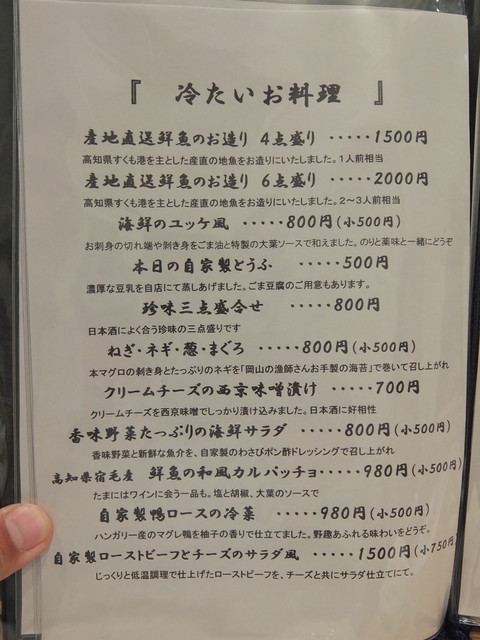 『 冷たいお料理 』
産地直送鮮魚のお造り 4点盛り ・・・・・1500円
高知県すくも港を主とした産直の地魚をお造りにいたしました。1人前相当
産地直送鮮魚のお造り 6点盛り ・・・・・2000円
高知県すくも港を主とした産直の地魚をお造りにいたしました。2～3人前相当
海鮮のユッケ風 ・・・・・800円(小500円)
お刺身の切れ端や剥き身をごま油と特製の大葉ソースで和えました。のりと薬味と一緒にどうぞ
本日の自家製とうふ ・・・・・500円
濃厚な豆乳を自店にて蒸しあげました。ごま豆腐のご用意もあります。
珍味三点盛合せ ・・・・・800円
日本酒によく合う珍味の三点盛りです
ねぎ・ネギ・葱・まぐろ ・・・・・800円(小500円)
本マグロの剥き身とたっぷりのネギを「岡山の漁師さんお手製の海苔」で巻いて召し上がれ
クリームチーズの西京味噌漬け ・・・・・700円
クリームチーズを西京味噌でしっかり漬け込みました。日本酒に好相性
香味野菜たっぷりの海鮮サラダ ・・・・・800円(小500円)
香味野菜と新鮮な魚介を、自家製のわさびポン酢ドレッシングで召し上がれ
高知県宿毛産 鮮魚の和風カルパッチョ・・・・・980円(小500円)
たまにはワインに会う一品も。塩と胡椒、大葉のソースで
自家製鴨ロースの冷菜 ・・・・・980円(小500円)
ハンガリー産のマグレ鴨を柚子の香りで仕立てました。野趣あふれる味わいをどうぞ。
自家製ローストビーフとチーズのサラダ風 ・・・・・1500円(小750円)
じっくりと低温調理で仕上げたローストビーフを、チーズと共にサラダ仕立てにて。